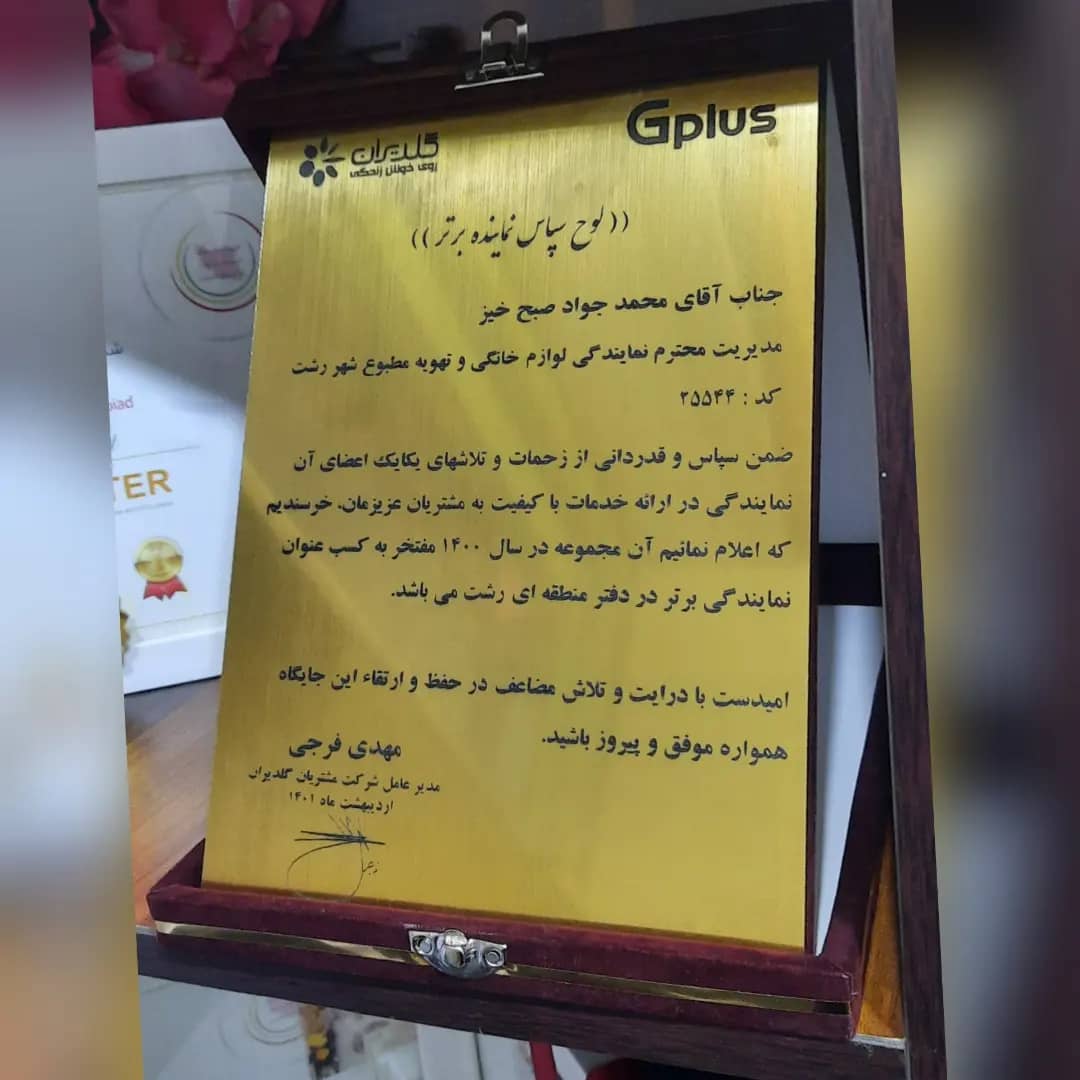 Gplus
گلدیران
روی خوش زندگی
((لوح سپاس نماینده برتر))
جناب آقای محمد جواد صبح خیز
مدیریت محترم نمایندگی لوازم خانگی و تهویه مطبوع شهر رشت
کد : ۲۵۵۴۴
ضمن سپاس و قدردانی از زحمات و تلاشهای یکایک اعضای آن
نمایندگی در ارائه خدمات با کیفیت به مشتریان عزیزمان، خرسندیم
که اعلام نمائیم آن مجموعه در سال ۱۴۰۰ مفتخر به کسب عنوان
نمایندگی برتر در دفتر منطقه ای رشت می باشد.
امیدست با درایت و تلاش مضاعف در حفظ و ارتقاء این جایگاه
همواره موفق و پیروز باشید.
مهدی فرجی
مدیر عامل شرکت مشتریان گلدیران
اردیبهشت ماه ۱۴۰۱